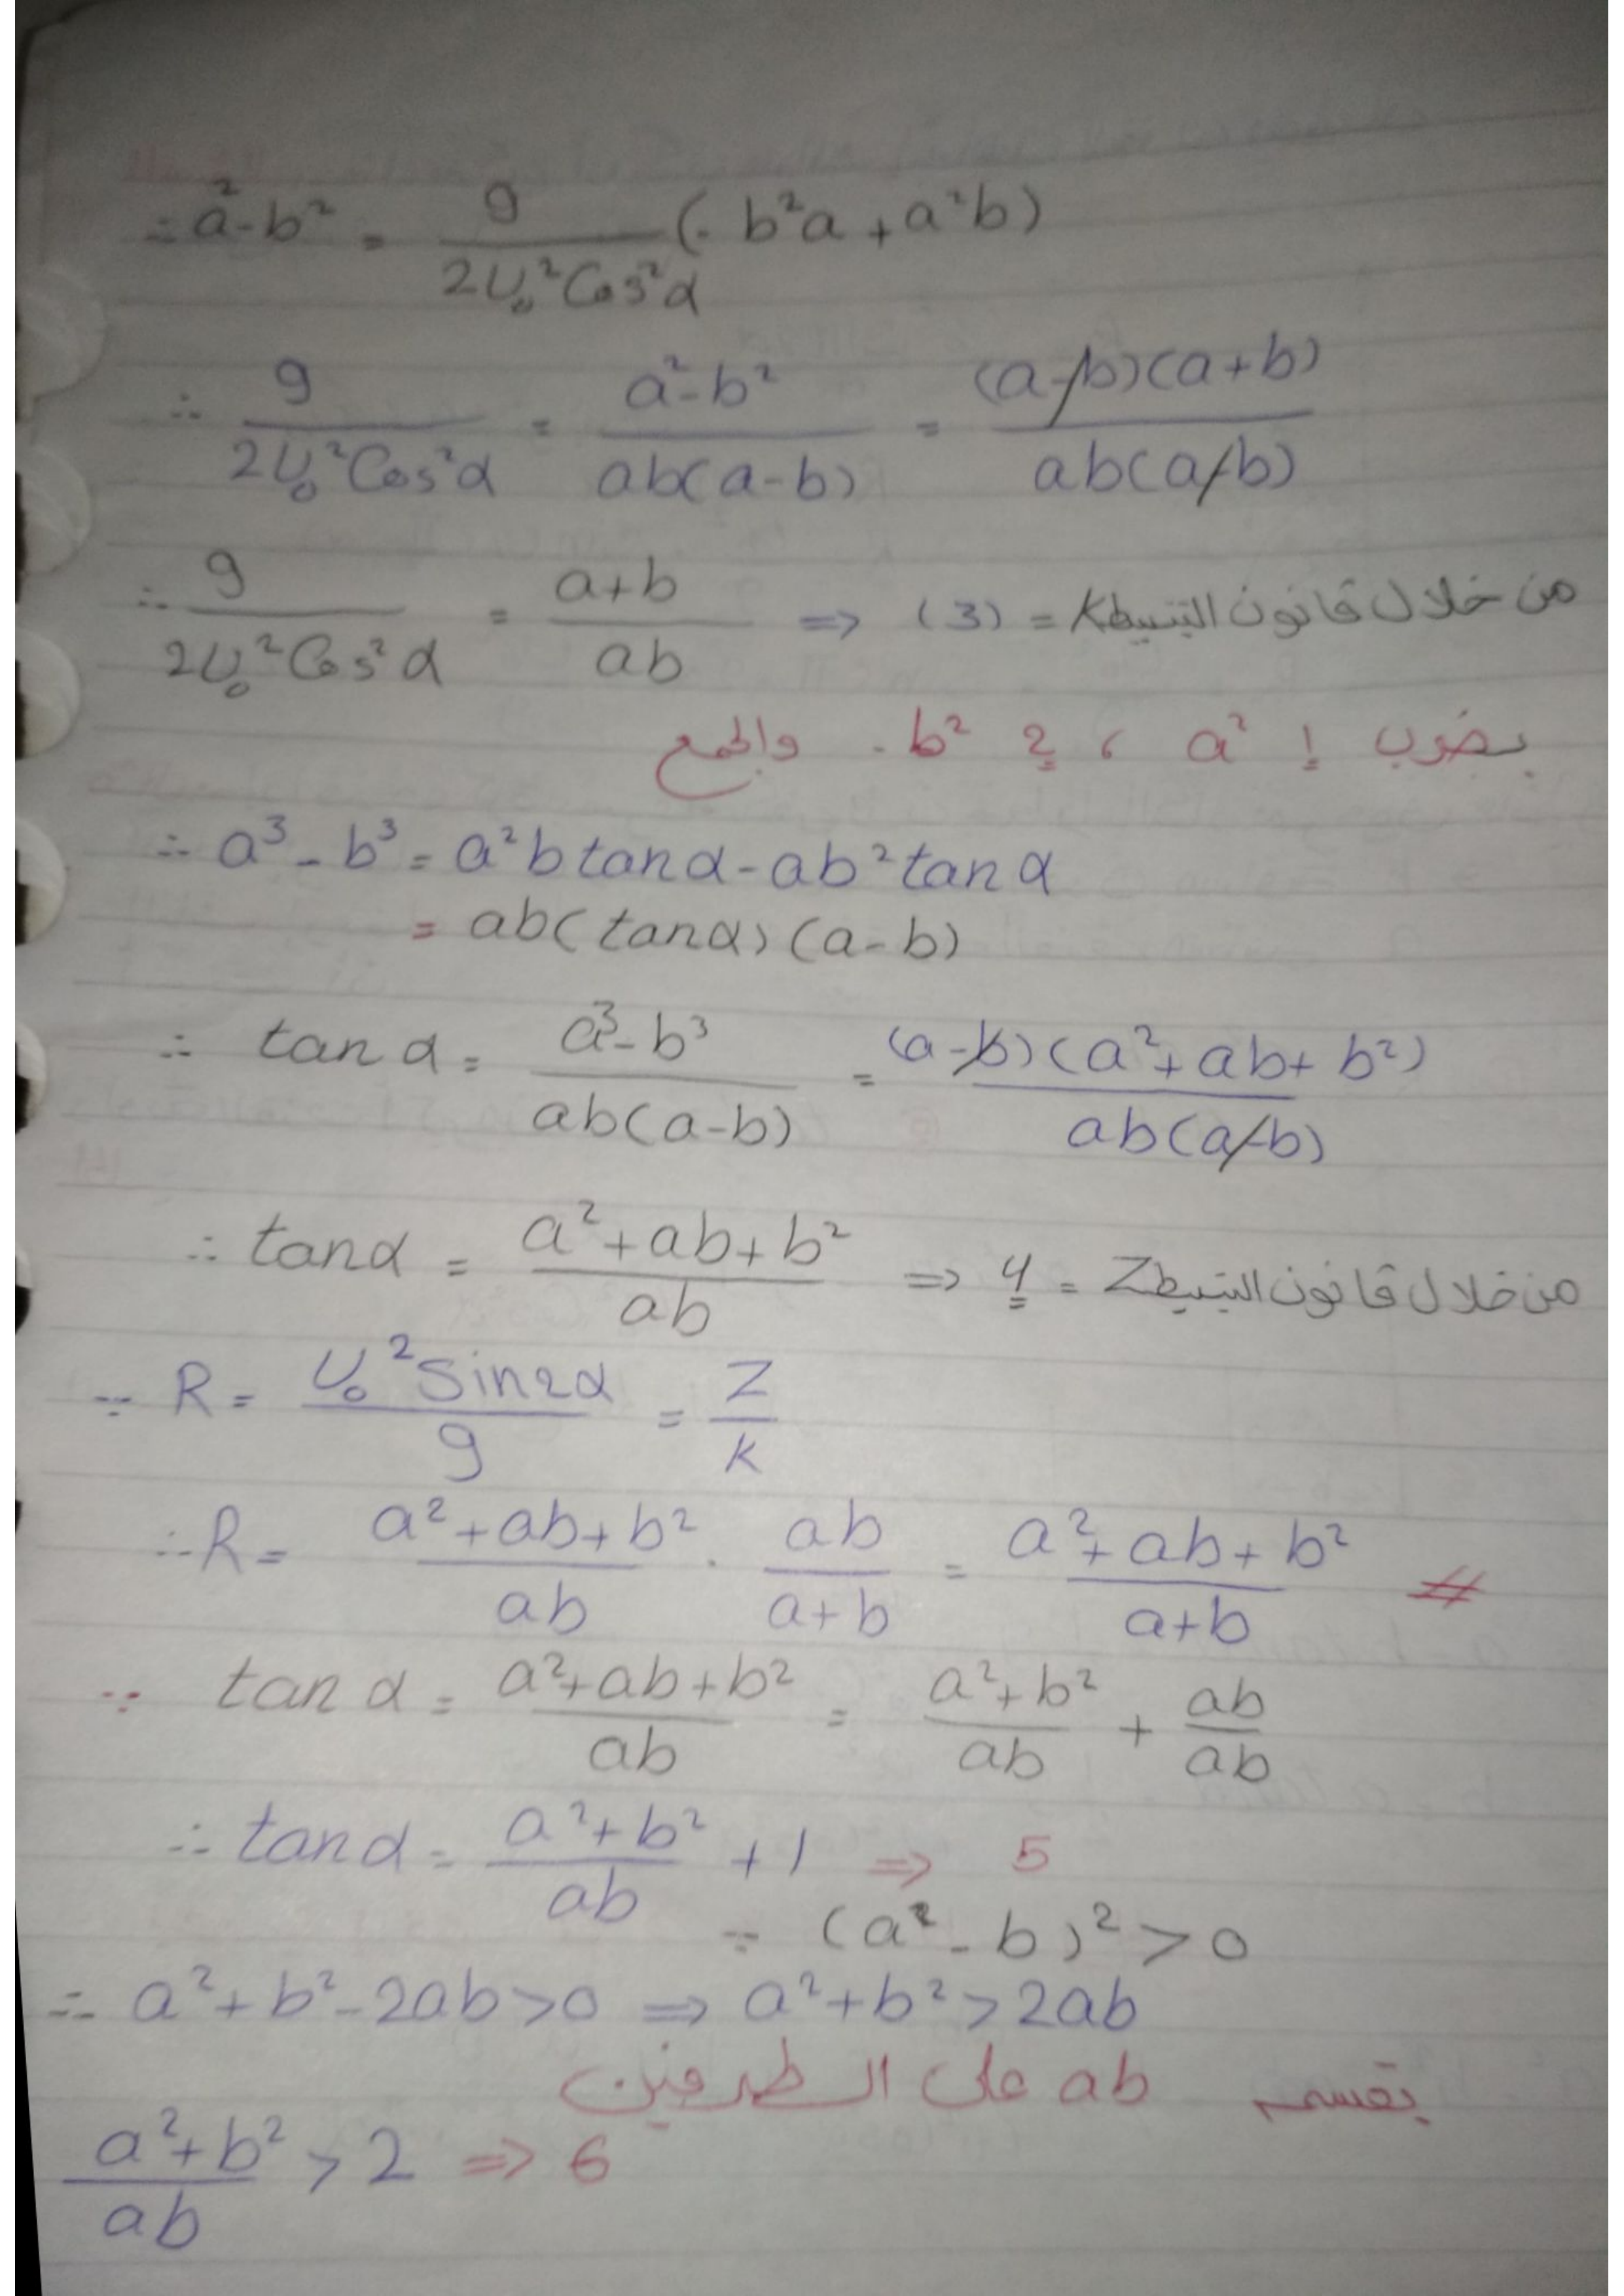 ∴ a² - b² = g / 2U₀²Cos²α (- b²a + a²b)
∴ g / 2U₀²Cos²α = a² - b² / ab(a-b) = (a-b)(a+b) / ab(a-b)
∴ g / 2U₀²Cos²α = a+b / ab ⇒ (3) = K من خلال قانون التبسيط
بضرب 1 a² ، 2 -b² والجمع
∴ a³ - b³ = a²b tanα - ab² tanα
= ab(tanα)(a-b)
∴ tanα = a³ - b³ / ab(a-b) = (a-b)(a² + ab + b²) / ab(a-b)
∴ tanα = a² + ab + b² / ab ⇒ 4 = Z من خلال قانون التبسيط
∵ R = U₀² Sin2α / g = Z / K
∴ R = a² + ab + b² / ab . ab / a+b = a² + ab + b² / a+b #
∵ tanα = a² + ab + b² / ab = a² + b² / ab + ab / ab
∴ tanα = a² + b² / ab + 1 ⇒ 5
∵ (a² - b)² > 0
∴ a² + b² - 2ab > 0 ⇒ a² + b² > 2ab
بقسمه ab على الطرفين
a² + b² / ab > 2 ⇒ 6